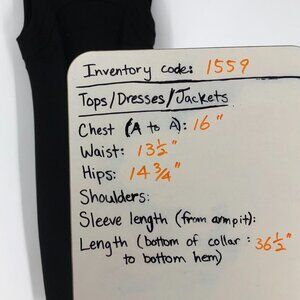 Inventory code: 1559
Tops/Dresses/Jackets
Chest (A to A): 16"
Waist: 13 1/2"
Hips: 14 3/4"
Shoulders:
Sleeve length (from armpit):
Length (bottom of collar : 36 1/2"
to bottom hem)